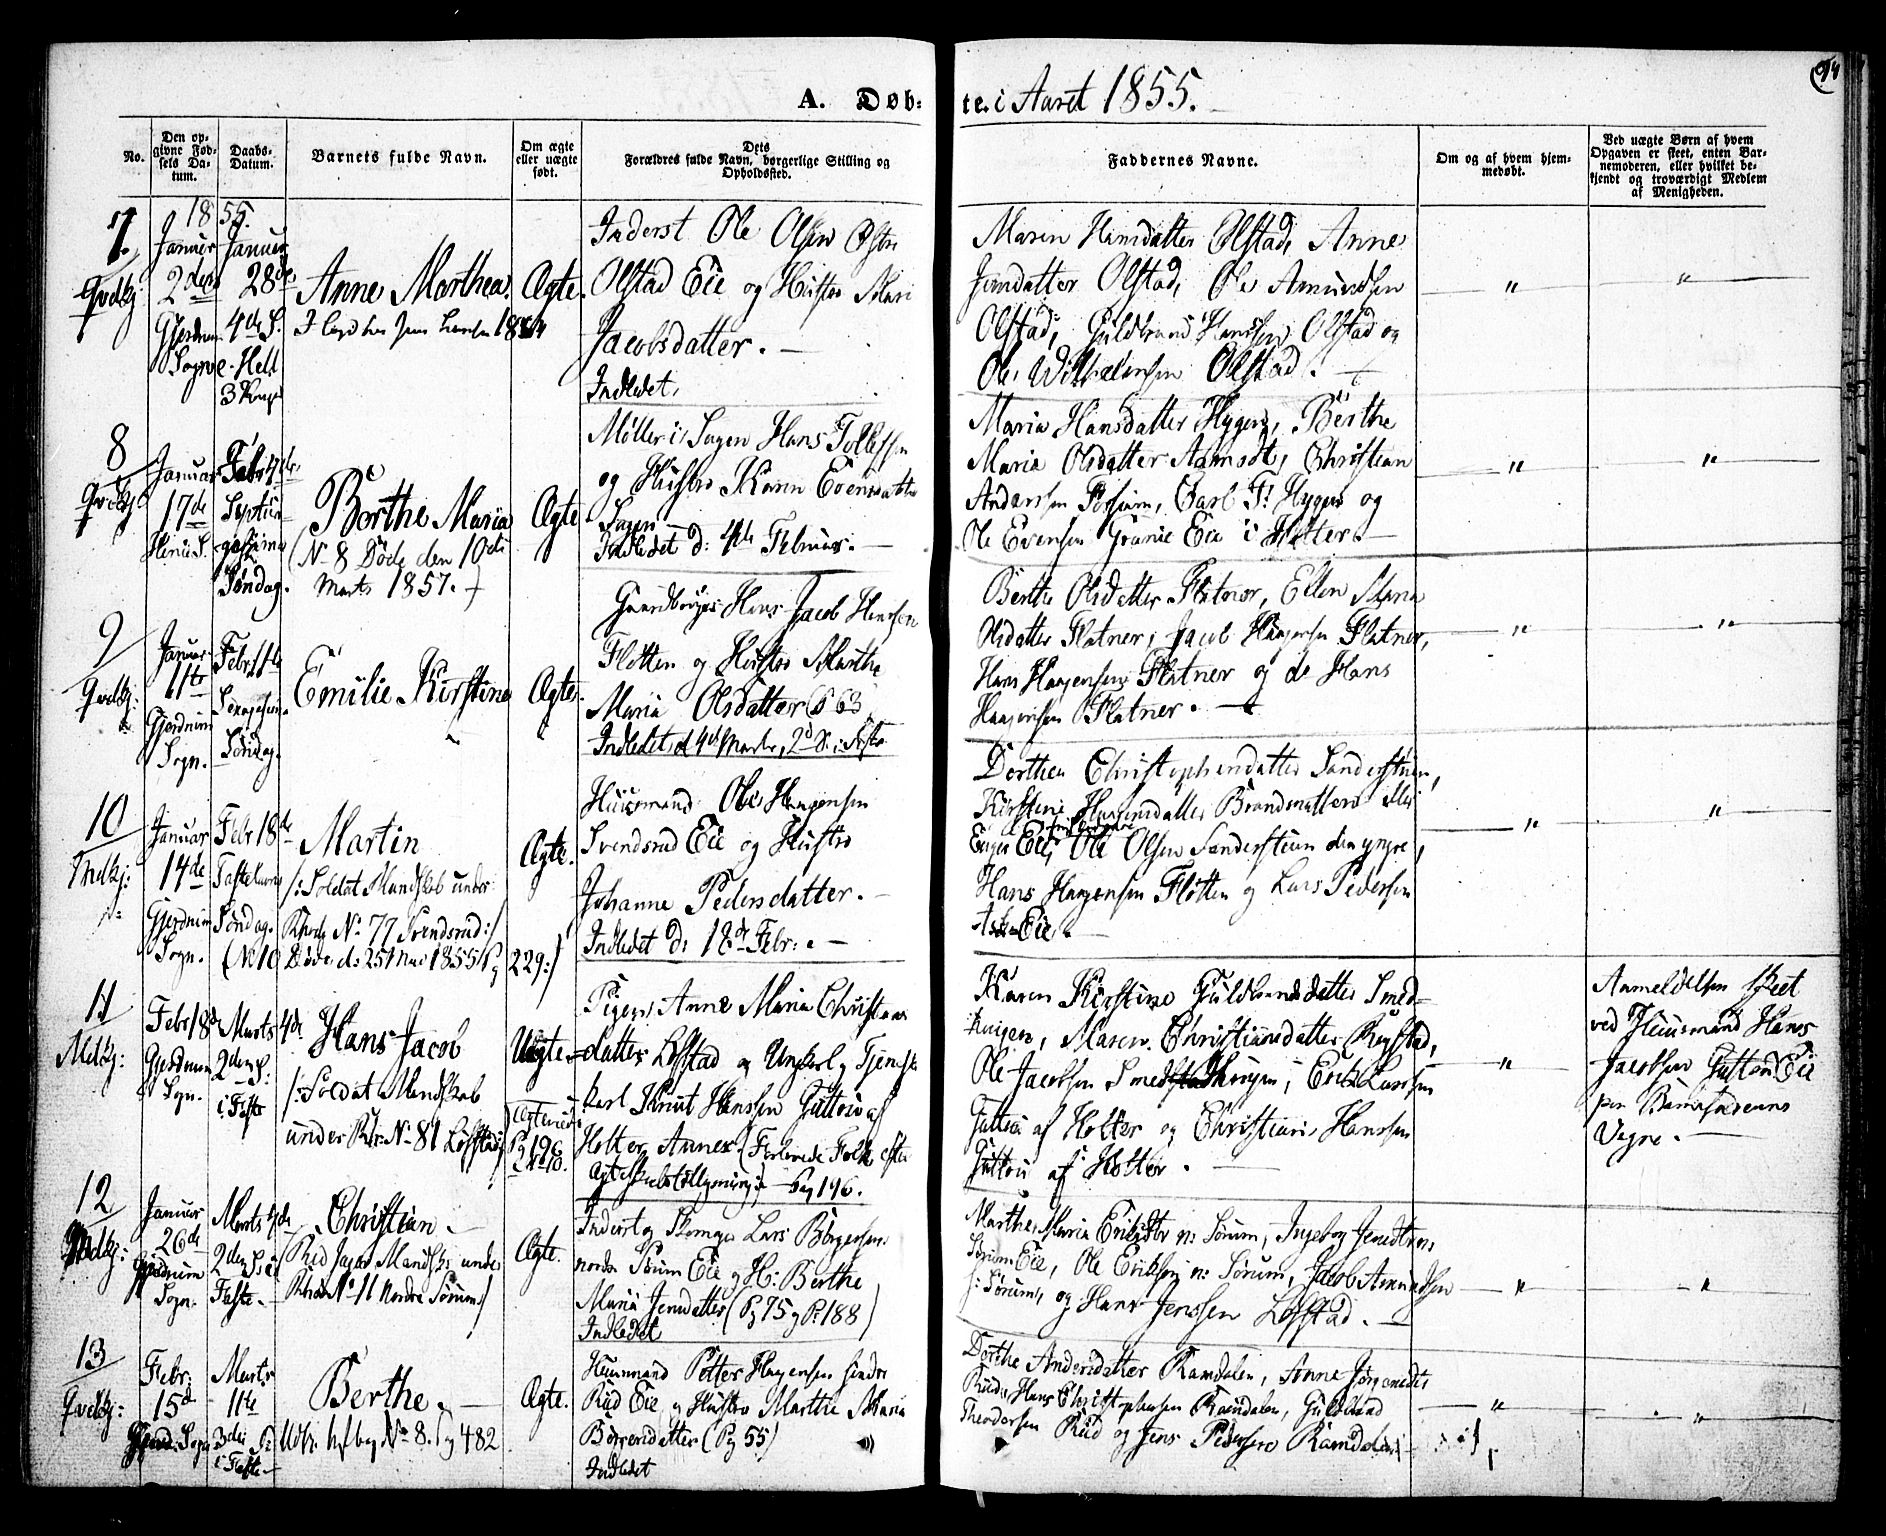 94
A. Døb-
te. i Aaret 1855.
No.
Den op-
givne Fød-
sels Da-
tum.
Daabs-
Datum.
Barnets fulde Navn.
Om ægte
eller uægte
født.
Dets
Forældres fulde Navn, borgerlige Stilling og
Opholdssted.
Faddernes Navne.
Om og af hvem hjem-
medøbt.
Ved uægte Børn af hvem
Opgaven er skeet, enten Bar-
nemoderen, eller hvilket be-
kjendt og troværdigt Medlem
af Menigheden.
1855.
7.
Qvdkj
Januar
2den
Gjerdrum
Sogn
Januar
28de
4de S.
e. Hell
3 Konger
Anne Marthea.
Ægte.
Inderst Ole Olsen Østre
Olstad Eie og Hustro Mari
Jacobsdatter. —
Indledet.
Maren Hansdatter Olstad, Anne
Jensdatter Olstad, Ole Amundsen
Olstad, Guldbrand Hanssen Olstad og
Ole Wilhelmsen Olstad. —
"
"
8
Qvdkj
Januar
17de
Febr 4de
Septua-
gesima
Søndag.
Berthe Maria
(No 8 Døde den 10de
Marts 1857.
Ægte
Møller i Sagen Hans Tollefsen
og Hustro Karen Evensdatter
Sagen —
Indledet d: 4de Februar. —
Maria Hansdatter Hygen, Berthe
Maria Olsdatter Aamodt, Christian
Anderssen Fossum, Carl F. Hygen og
Ole Evensen Granie Eie i Holter. —
"
"
9
Qvdkj:
Januar
11te
Gjerdrum
Sogn.
Febr 11te
Sexagesima
Søndag.
Emilie Kirstine
Ægte.
Gaardbruger Hans Jacob Hanssen
Fløtten og Hustro Marthe
Maria Olsdatter (P 63
Indledet d 4de Marts, 2d S. i Faste
Berthe Olsdatter Flatner, Ellen Maria
Olsdatter Flatner, Jacob Haagensen Flatner,
Hans Haagensen Flatner og de Hans
Haagensen Flatner. —
"
"
10
Mdkj:
Januar
14de
Gjerdrum
Sogn.
Febr 18de
Fastelavns
Søndag.
Martin
/: Soldat Mandskab under
Rhode No 77 Svendsrud :/
(No 10 Døde d: 25 Mai 1855 Pg 229:)
Ægte.
Huusmand Ole Haagensen
Svendsrud Eie og Hustro
Johanne Pedersdatter. —
Indledet d: 18de Febr: —
Dorthea Christophersdatter Sanderstuen,
Kirstine Hansdatter Brandsnatten
Eie, Ole Olsen Sanderstuen den yngre,
Hans Haagensen Fløtten og Lars Pedersen
Ask Eie.
"
"
11
Mdkj:
Febr 18de
Gjerdrum
Sogn.
Marts 4de
2den S:
i Faste
Hans Jacob
/: Soldat Mandskab
under Rh: No 81 Løstad
Uægte
Pg 196
No 10.
Pigen Anne Maria Christians
datter Løstad og Ungkarl og Tjeneste
karl Knut Hanssen Guttou af
Holter Annex (Forlovede Folk efter
Ægteskabs Lysning) Pag 196.
Karen Kirstine Guldbrandsdatter Smed-
kuigen, Maren Christiansdatter Rystad,
Ole Jacobsen Smedkuigen, Erik Larssen
Guttou af Holter og Christian Hanssen
Guttou af Holter. —
"
Anmeldelsen skeet
ved Huusmand Hans
Jacobsen Guttou Eie
paa Barnefaderens
Vegne. —
12
Mdkj:
Januar
26de
Gjerdrum
Sogn.
Marts 4de
2den S i
Faste. —
Christian. —
Rid Jæger Mandskab under
Rhode No 11 Nordre Sørum
Ægte.
Inderst og Skomager Lars Børgersen
nordre Sørum Eie og H: Berthe
Maria Jensdatter (Pg 75 og P: 188)
Indledet
Marthe Maria Eriksdtr n: Sørum, Ingeborg Jensdtr n:
Sørum Eie, Ole Eriksen n: Sørum, Jacob Amundsen
s: Sørum, og Hans Jenssen Løstad. —
"
"
13
Qvdkj:
Febr.
15de
Gjerd: Sogn
Marts
11te
3die S
i Faste —
Berthe. —
No 8. Pg 482
Ægte.
Huusmand Petter Haagensen søndre
Rud Eie og Hustro Marthe Maria
Børresdatter (Pg 55)
Indledet
Dorthe Andersdatter Ramdalen, Anne Jørgensdtr
Rud, Hans Christophersen Ramdalen, Guldbrand
Theodorsen Rud og Jens Pedersen Ramdalen —
"
"